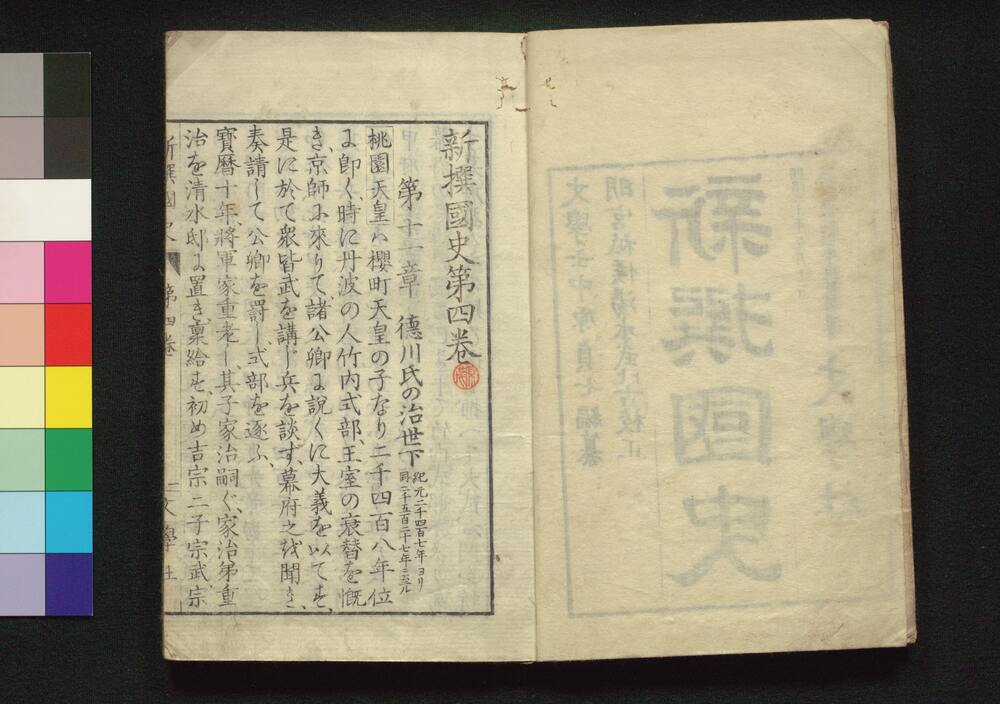 新撰國史第四卷
第十一章 德川氏の治世下 紀元二千四百七年ヨリ
同二千五百二十七年ニ至ル
桃園天皇ハ櫻町天皇の子なり二千四百八年位
に卽く、時に丹波の人竹内式部、王室の衰替を慨
き、京師に來りて、諸公卿に說くに大義を以てす、
是に於て衆皆武を講じ兵を談ず、幕府之を聞き、
奏請して公卿を罰し式部を逐ふ、
寶曆十年、將軍家重老し、其子家治嗣ぐ、家治弟重
治を清水邸に置き稟給す、初め吉宗二子宗武、宗
新撰國史 第四卷 文學社
新撰國史